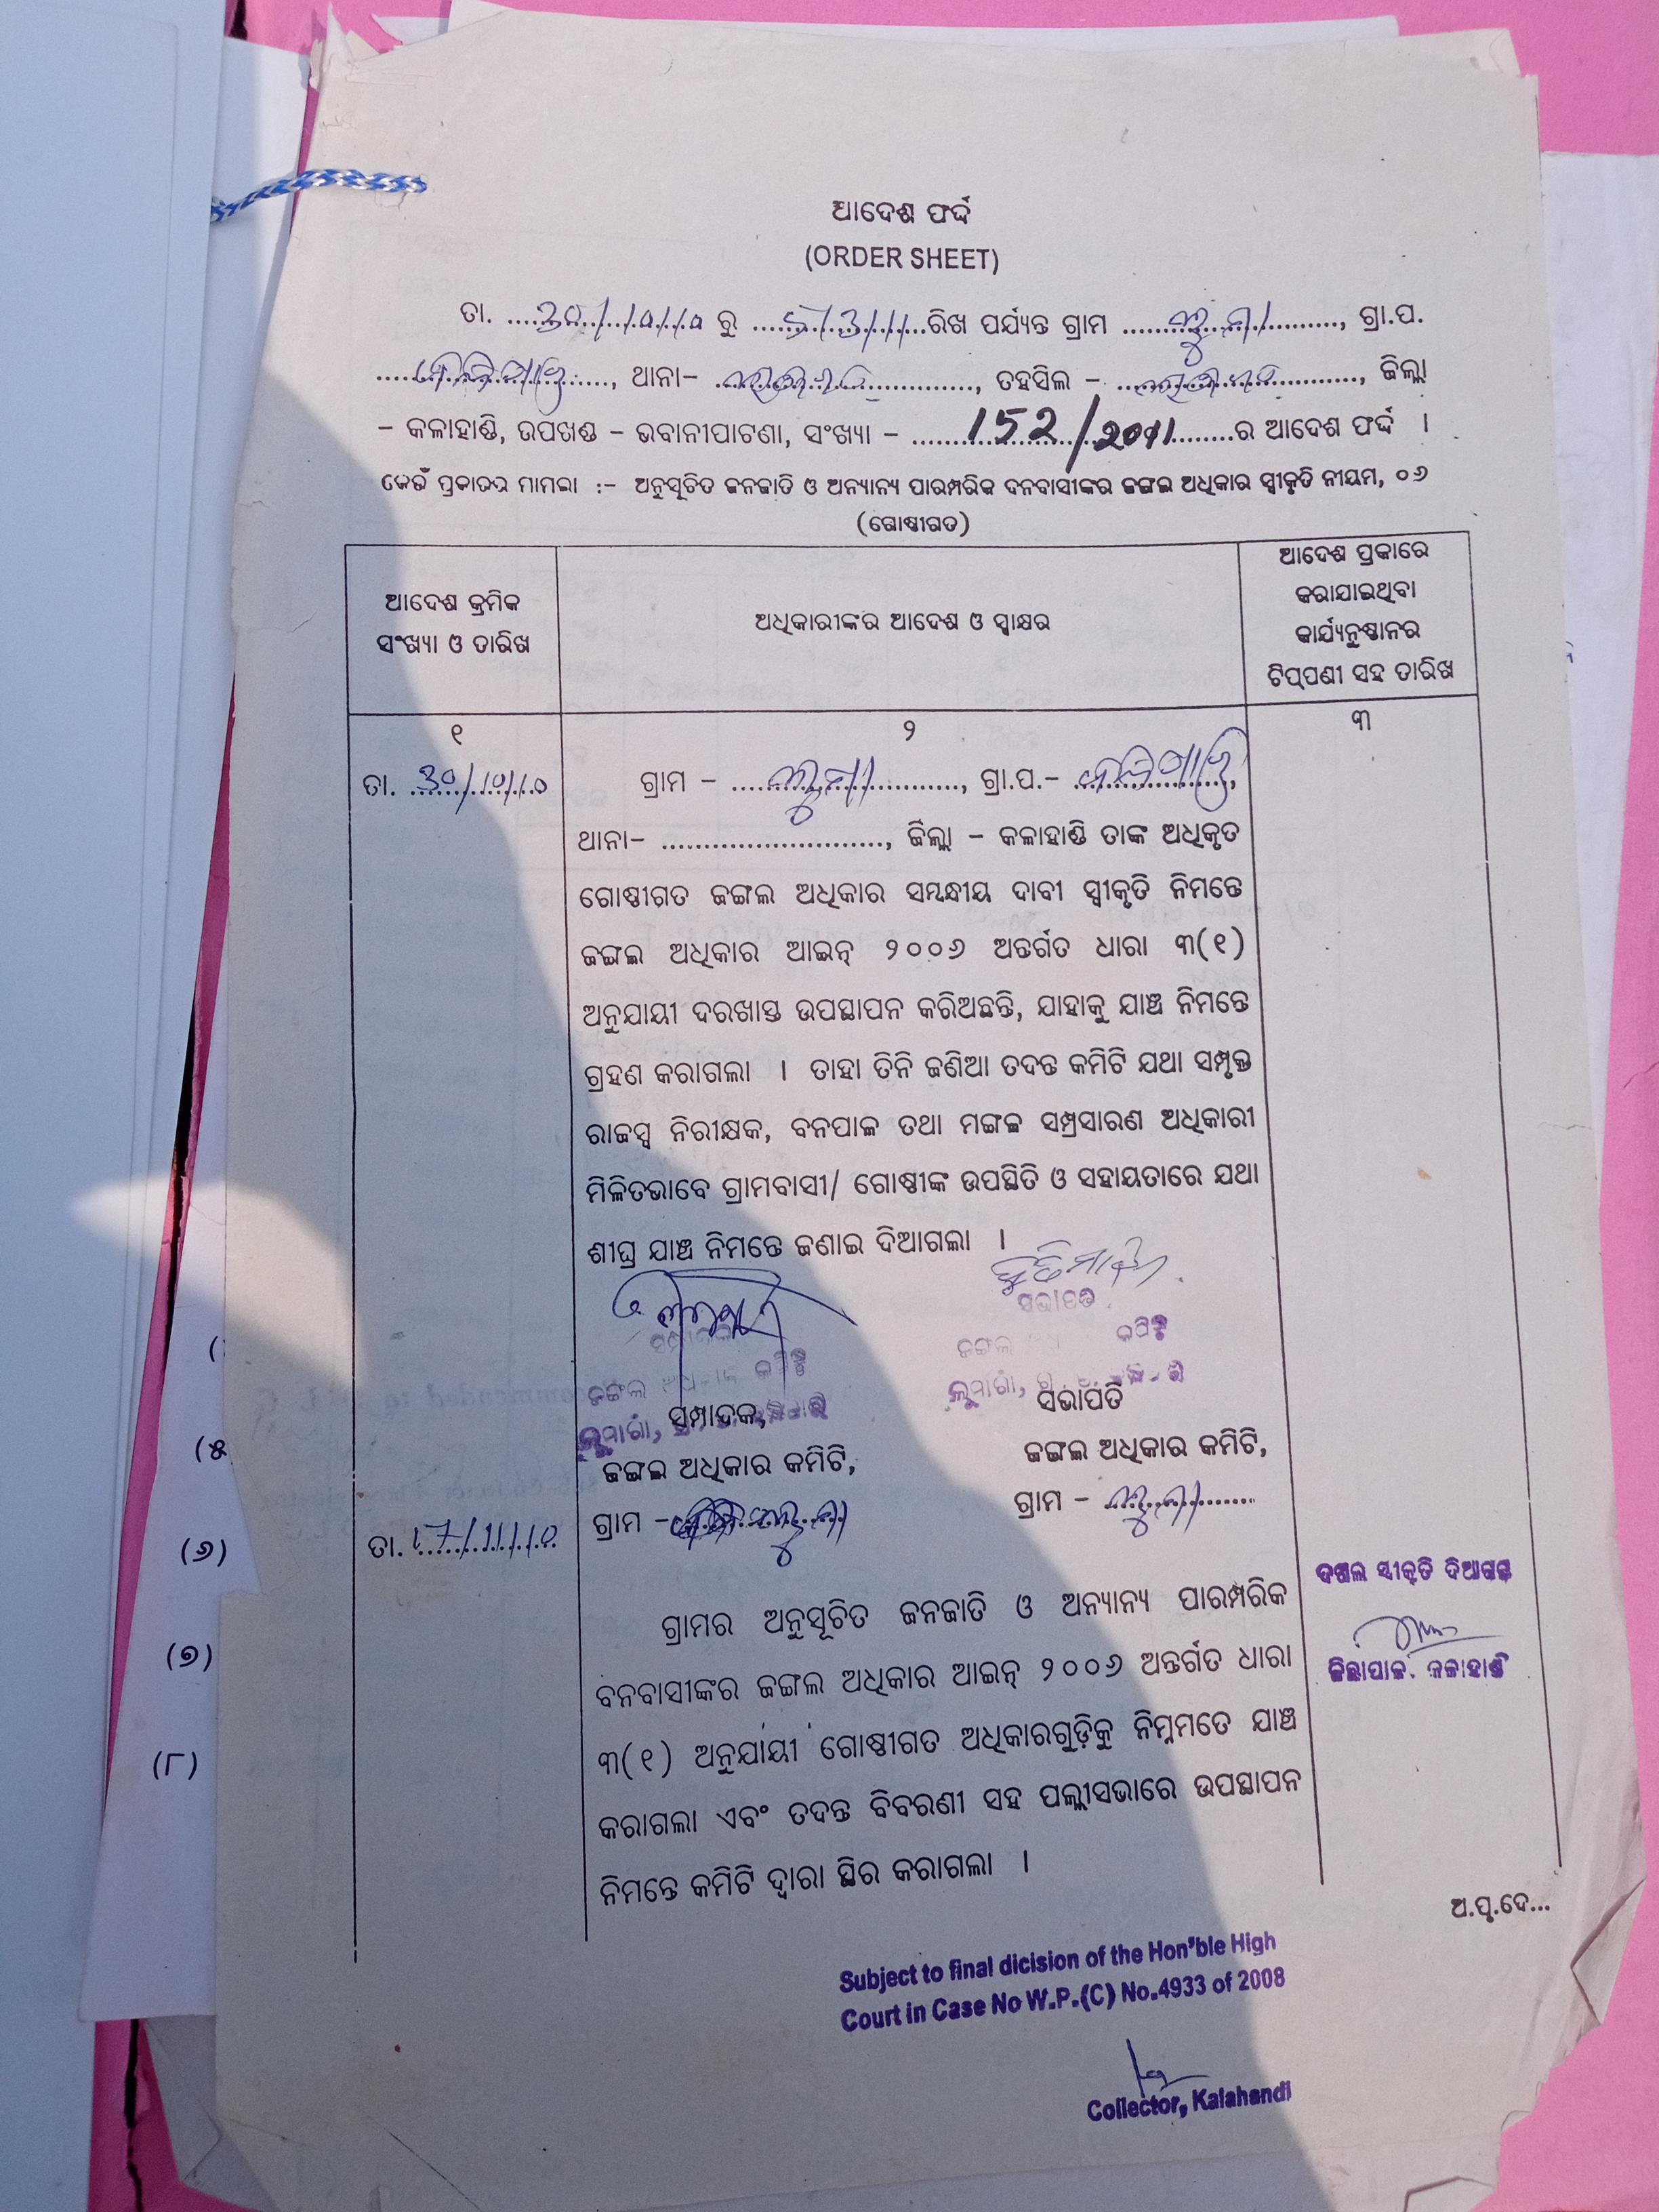 ଆଦେଶ ଫର୍ଦ୍ଦ
(ORDER SHEET)
ତା. 30/10/10 ରୁ 5/3/11 ରିଖ ପର୍ଯ୍ୟନ୍ତ ଗ୍ରାମ ...................., ଗ୍ରା.ପ.
...................., ଥାନା- ...................., ତହସିଲ - ...................., ଜିଲ୍ଲା
- କଳାହାଣ୍ଡି, ଉପଖଣ୍ଡ - ଭବାନୀପାଟଣା, ସଂଖ୍ୟା - 152/2011 ର ଆଦେଶ ଫର୍ଦ୍ଦ ।
କେଉଁ ପ୍ରକାରର ମାମଲା :- ଅନୁସୂଚିତ ଜନଜାତି ଓ ଅନ୍ୟାନ୍ୟ ପାରମ୍ପରିକ ବନବାସୀଙ୍କର ଜଙ୍ଗଲ ଅଧିକାର ସ୍ୱୀକୃତି ନୀୟମ, ୦୬
(ଗୋଷ୍ଠୀଗତ)
ଆଦେଶ କ୍ରମିକ
ସଂଖ୍ୟା ଓ ତାରିଖ
ଅଧିକାରୀଙ୍କର ଆଦେଶ ଓ ସ୍ୱାକ୍ଷର
ଆଦେଶ ପ୍ରକାରେ
କରାଯାଇଥିବା
କାର୍ଯ୍ୟନୁଷ୍ଠାନର
ଟିପ୍ପଣୀ ସହ ତାରିଖ
୧
୨
୩
ତା. 30/10/10
ଗ୍ରାମ - ...................., ଗ୍ରା.ପ.- ....................,
ଥାନା- ..........................., ଜିଲ୍ଲା - କଳାହାଣ୍ଡି ତାଙ୍କ ଅଧିକୃତ
ଗୋଷ୍ଠୀଗତ ଜଙ୍ଗଲ ଅଧିକାର ସମ୍ବନ୍ଧୀୟ ଦାବୀ ସ୍ୱୀକୃତି ନିମନ୍ତେ
ଜଙ୍ଗଲ ଅଧିକାର ଆଇନ୍ ୨୦୦୬ ଅନ୍ତର୍ଗତ ଧାରା ୩(୧)
ଅନୁଯାୟୀ ଦରଖାସ୍ତ ଉପସ୍ଥାପନ କରିଅଛନ୍ତି, ଯାହାକୁ ଯାଞ୍ଚ ନିମନ୍ତେ
ଗ୍ରହଣ କରାଗଲା । ତାହା ତିନି ଜଣିଆ ତଦନ୍ତ କମିଟି ଯଥା ସମ୍ପୃକ୍ତ
ରାଜସ୍ୱ ନିରୀକ୍ଷକ, ବନପାଳ ତଥା ମଙ୍ଗଳ ସମ୍ପ୍ରସାରଣ ଅଧିକାରୀ
ମିଳିତଭାବେ ଗ୍ରାମବାସୀ/ ଗୋଷ୍ଠୀଙ୍କ ଉପସ୍ଥିତି ଓ ସହାୟତାରେ ଯଥା
ଶୀଘ୍ର ଯାଞ୍ଚ ନିମନ୍ତେ ଜଣାଇ ଦିଆଗଲା ।
ସଭାପତି
ସମ୍ପାଦକ,
ସଭାପତି
ଜଙ୍ଗଲ ଅଧିକାର କମିଟି,
ଜଙ୍ଗଲ ଅଧିକାର କମିଟି,
ଗ୍ରାମ -
ଗ୍ରାମ -
ତା. 17/11/10
ଗ୍ରାମର ଅନୁସୂଚିତ ଜନଜାତି ଓ ଅନ୍ୟାନ୍ୟ ପାରମ୍ପରିକ
ବନବାସୀଙ୍କର ଜଙ୍ଗଲ ଅଧିକାର ଆଇନ୍ ୨୦୦୬ ଅନ୍ତର୍ଗତ ଧାରା
୩(୧) ଅନୁଯାୟୀ ଗୋଷ୍ଠୀଗତ ଅଧିକାରଗୁଡ଼ିକୁ ନିମ୍ନମତେ ଯାଞ୍ଚ
କରାଗଲା ଏବଂ ତଦନ୍ତ ବିବରଣୀ ସହ ପଲ୍ଲୀସଭାରେ ଉପସ୍ଥାପନ
ନିମନ୍ତେ କମିଟି ଦ୍ୱାରା ସ୍ଥିର କରାଗଲା ।
ଦଖଲ ସ୍ୱୀକୃତି ଦିଆଗଲା
ଜିଲ୍ଲାପାଳ. କଳାହାଣ୍ଡି
ଅ.ପୃ.ଦେ...
Subject to final dicision of the Hon'ble High
Court in Case No W.P.(C) No.4933 of 2008
Collector, Kalahandi
(୫
(୬)
(୭)
(୮)